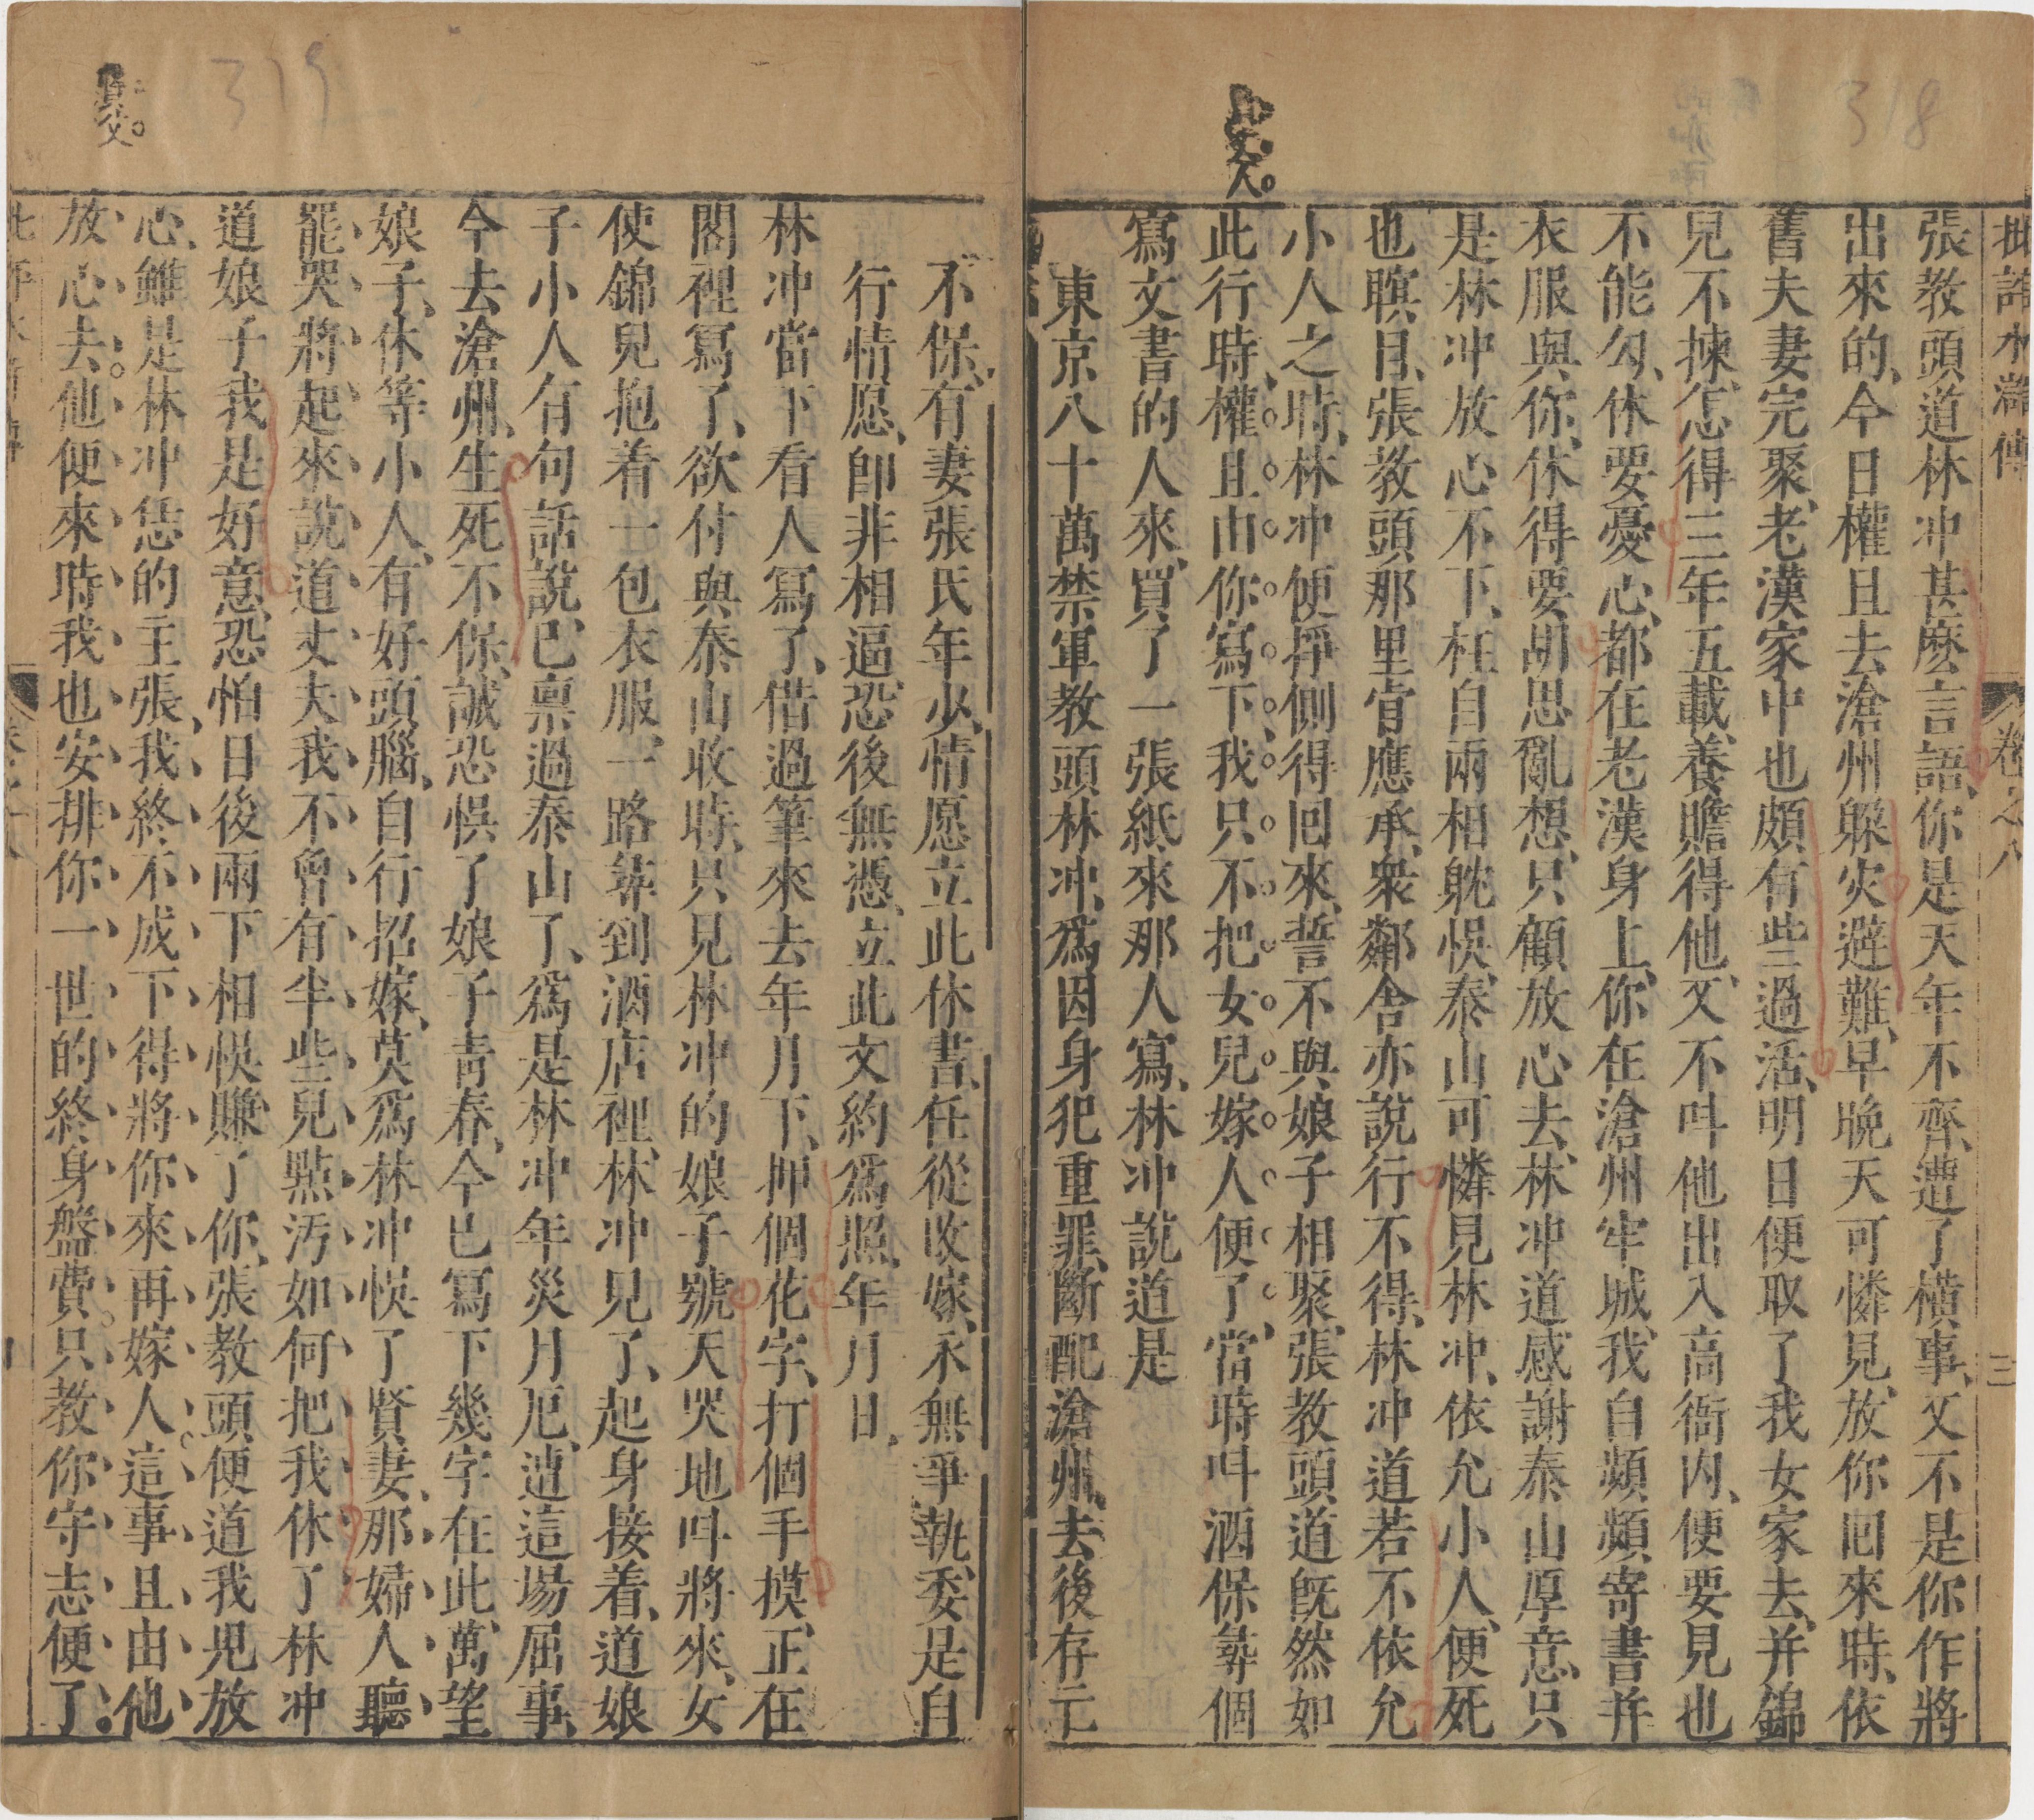 318
批評水滸傳
卷之八
三
張教頭道林冲甚麽言語你是天年不齊遭了橫事又不是你作將
出來的今日權且去滄州躱灾避難早晚天可憐見放你回來時依
舊夫妻完聚老漢家中也頗有些過活明日便取了我女家去并錦
兒不揀怎得三年五載養贍得他又不呌他出入高衙內便要見也
不能勾休要憂心都在老漢身上你在滄州牢城我自頻頻寄書并
衣服與你休得要胡思亂想只顧放心去林冲道感謝泰山厚意只
是林冲放心不下枉自兩相躭悞泰山可憐見林冲依允小人便死
也瞑目張教頭那里肯應承衆鄰舍亦說行不得林冲道若不依允
小人之時林冲便掙側得回來誓不與娘子相聚張教頭道旣然如
此行時權且由你寫下我只不把女兒嫁人便了當時呌酒保尋個
寫文書的人來買了一張紙來那人寫林冲說道是
東京八十萬禁軍教頭林冲爲因身犯重罪斷配滄州去後存亡
319
不保有妻張氏年少情愿立此休書任從改嫁永無爭執委是自
行情愿卽非相逼恐後無憑立此文約爲照年月日
林冲當下看人寫了借過筆來去年月下押個花字打個手摸正在
閣裡寫了欲付與泰山收時只見林冲的娘子號天哭地呌將來女
使錦兒抱着一包衣服一路尋到酒店裡林冲見了起身接着道娘
子小人有句話說已稟過泰山了爲是林冲年災月厄遭這塲屈事
今去滄州生死不保誠恐悞了娘子青春今已寫下幾字在此萬望
娘子休等小人有好頭腦自行招嫁莫爲林冲悞了賢妻那婦人聽
罷哭將起來說道丈夫我不曾有半些兒㸃汚如何把我休了林冲
道娘子我是好意恐怕日後兩下相悞賺了你張教頭便道我兒放
心雖是林冲恁的主張我終不成下得將你來再嫁人這事且由他
放心去他便來時我也安排你一世的終身盤費只教你守志便了